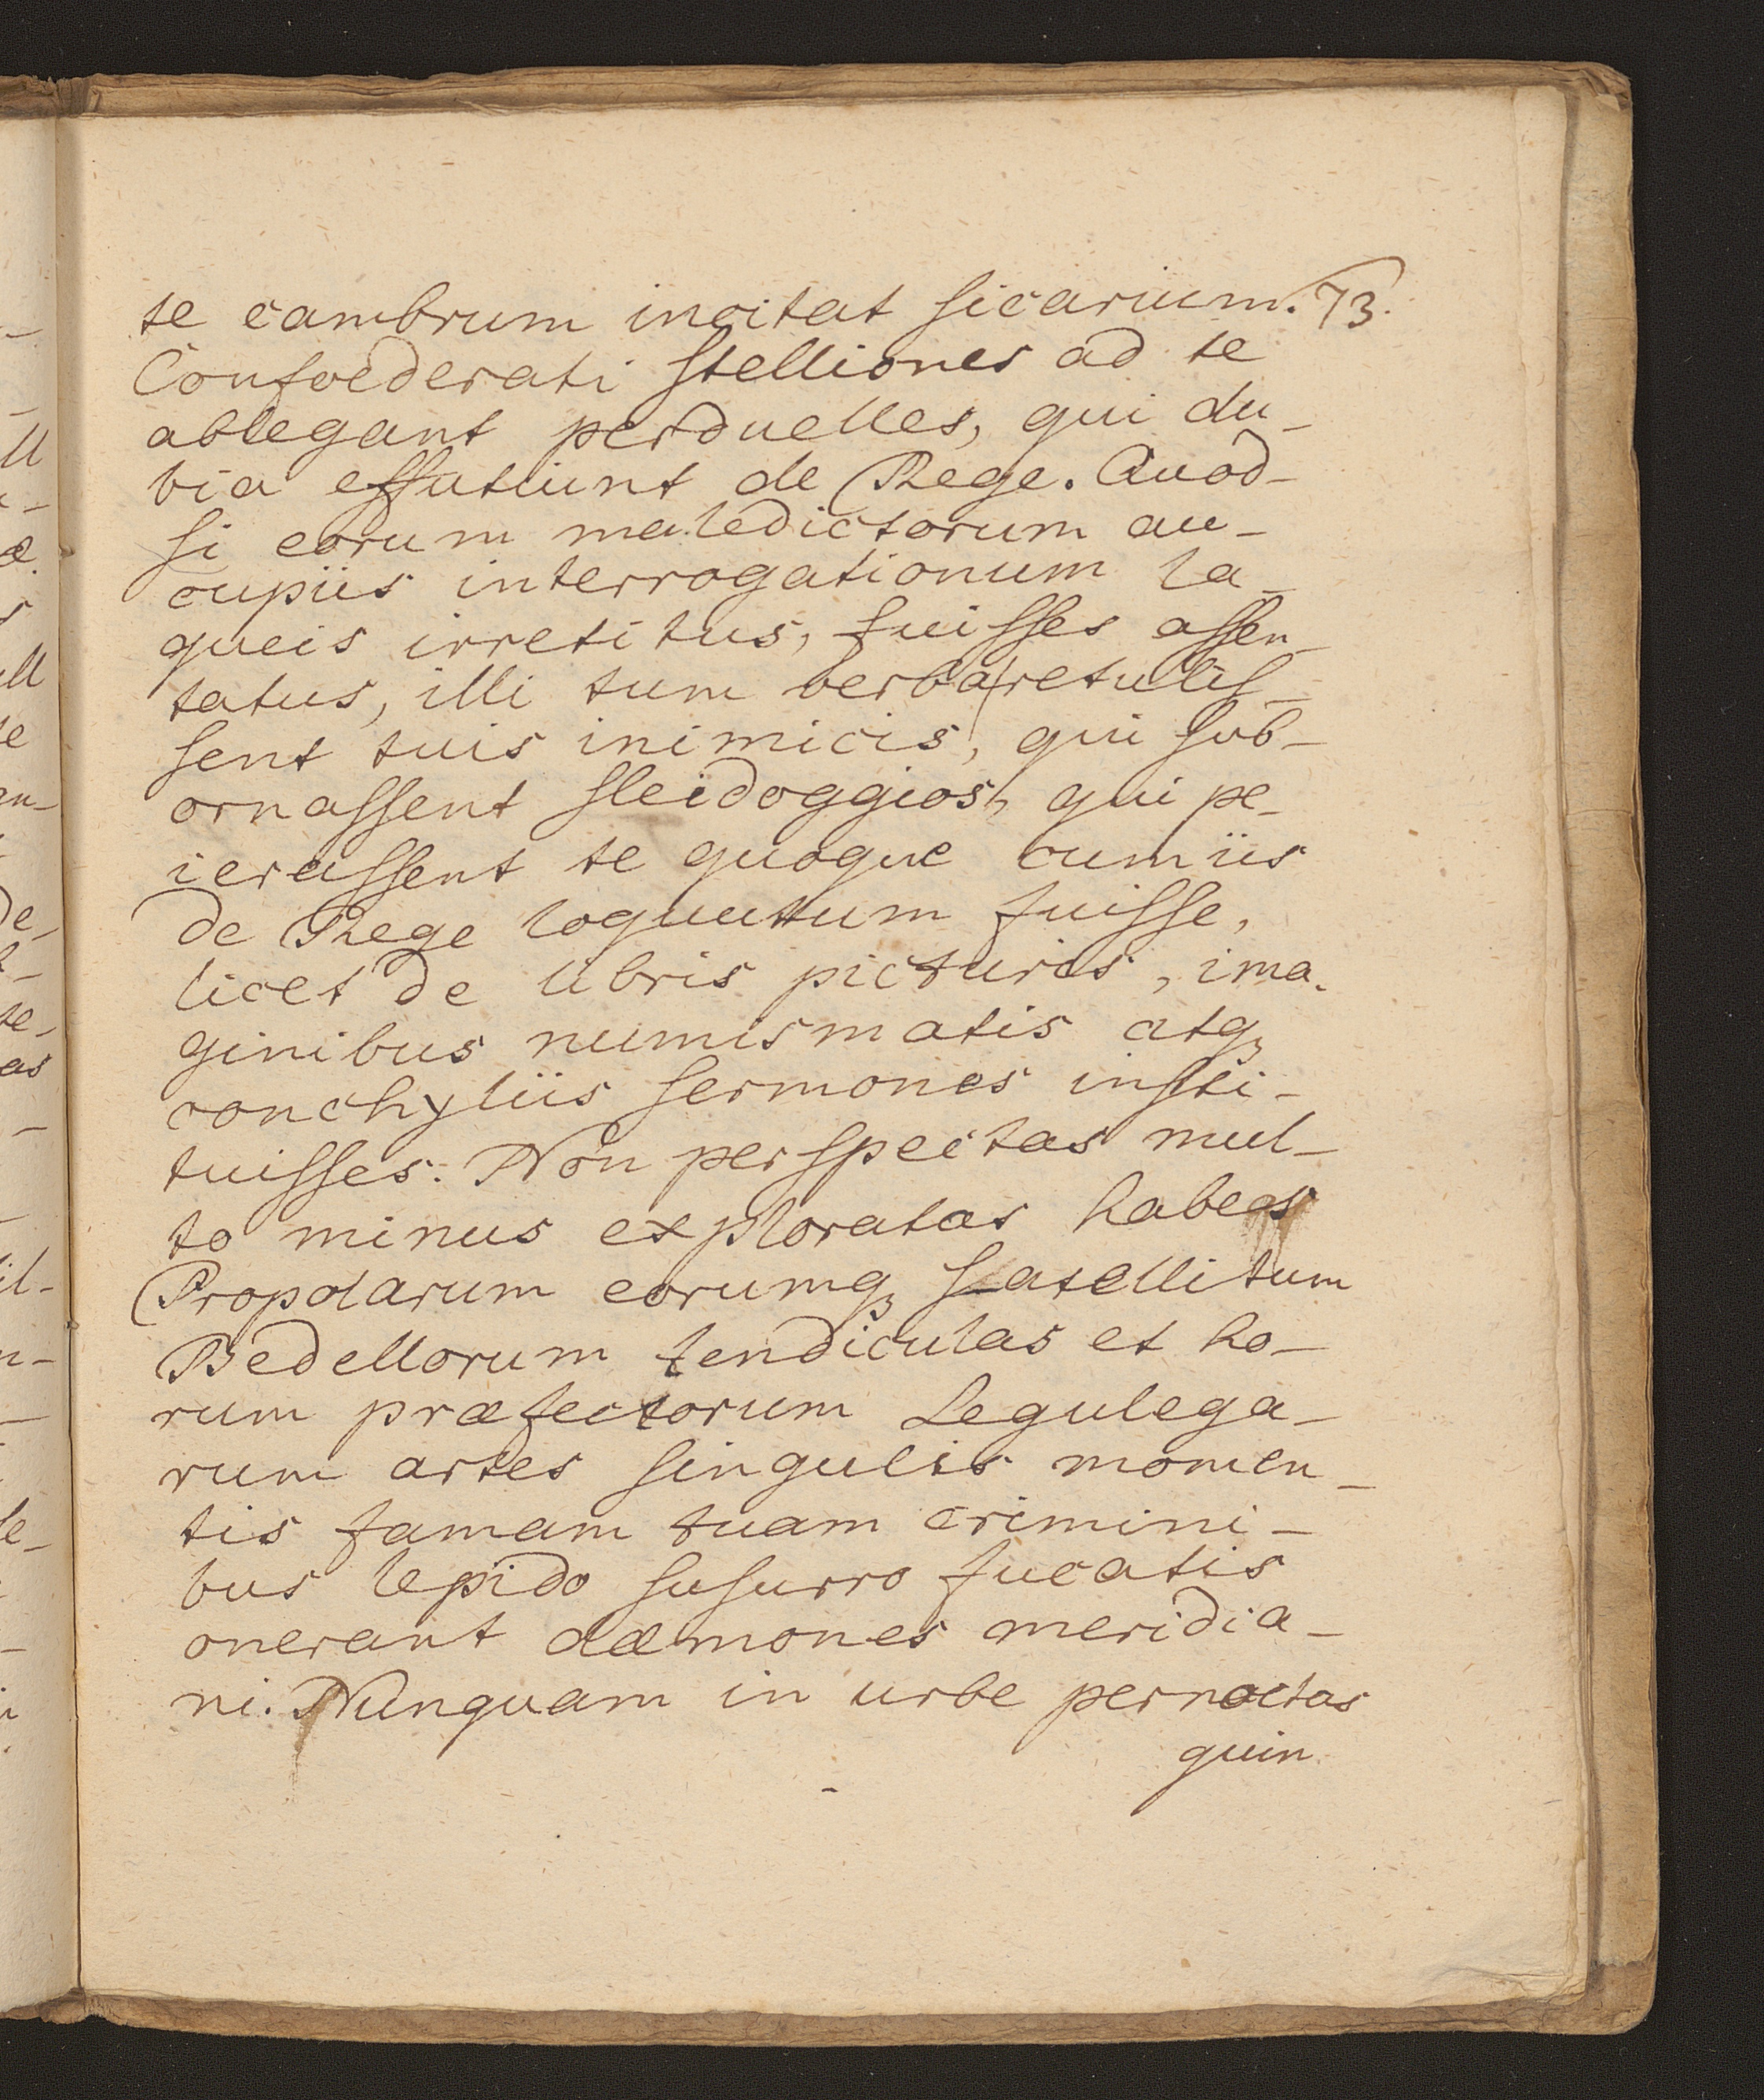 te cambrum incitat sicarium. 73.
Confoederati stelliones ad te
ablegant perduelles, qui du-
bia effutiunt de Rege. Quod-
si eorum maledictorum au-
cupiis interrogationum la-
queis irretitus, fuisses assen-
tatus, illi tum verba retulis-
sent tuis inimicis, qui sub-
ornassent sleidoggios, qui pe-
ierassent te quoque cum iis
de Rege loquutum fuisse,
licet de libris picturis, ima-
ginibus numismatis atq;
conchyliis sermones insti-
tuisses. Non perspectas mul-
to minus exploratas habeas
Propolarum eorumq; satellitum
Bedellorum tendiculas et ho-
rum præfectorum Legulega-
rum artes singulis momen-
tis famam tuam crimini-
bus lepido susurro fucatis
onerant dæmones meridia-
ni. Nunquam in urbe pernoctas
quin